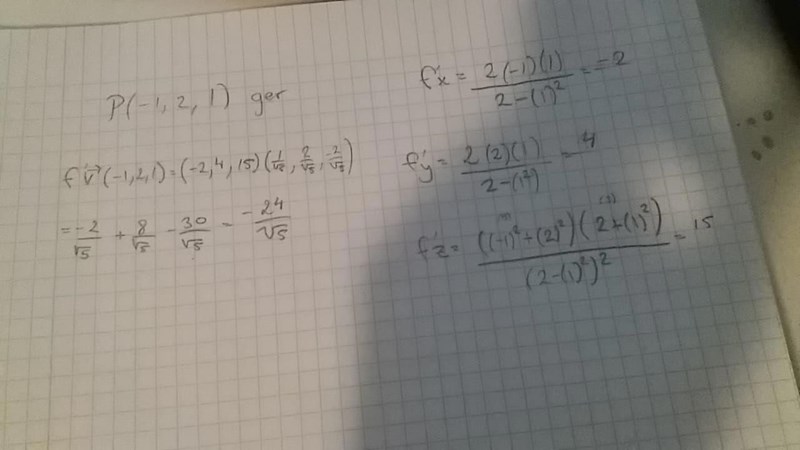 P(-1, 2, 1) ger
f'v⃗ (-1,2,1) = (-2, 4, 15) (1/√5, 2/√5, -2/√5)
= -2/√5 + 8/√5 - 30/√5 = -24/√5
f'x = 2(-1)(1) / 2-(1)² = -2
f'y = 2(2)(1) / 2-(1²) = 4
f'z = ((-1)²+(2)²)(2+(1)²) / (2-(1)²)² = 15